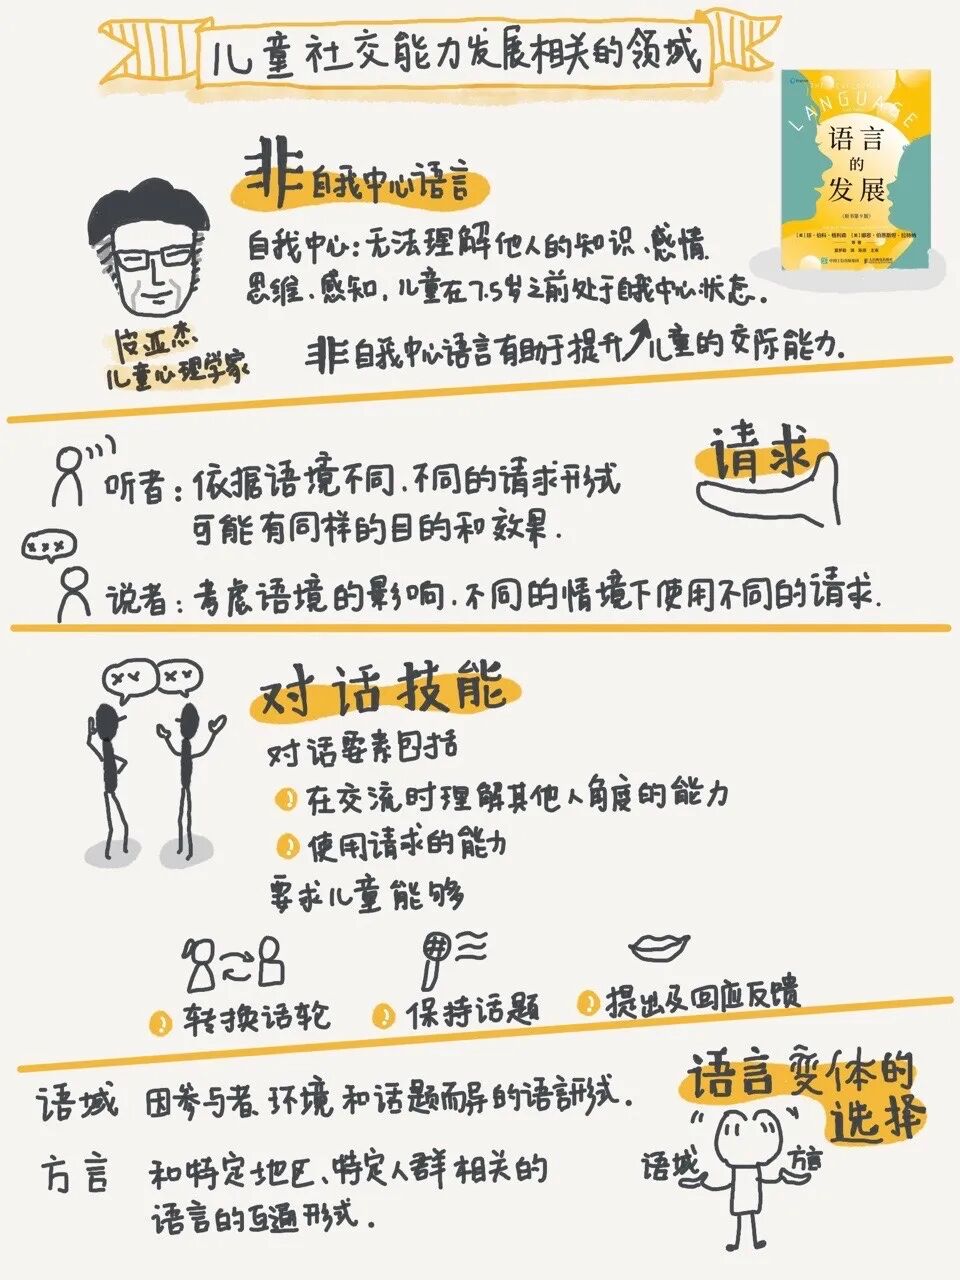 儿童社交能力发展相关的领域
LANGUAGE
语言
的
发展
(原书第9版)
非自我中心语言
自我中心:无法理解他人的知识、感情、
思维、感知,儿童在7.5岁之前处于自我中心状态。
非自我中心语言有助于提升儿童的交际能力。
皮亚杰
儿童心理学家
请求
听者:依据语境不同、不同的请求形式
可能有同样的目的和效果.
说者:考虑语境的影响、不同的情境下使用不同的请求.
对话技能
对话要素包括
在交流时理解其他人角度的能力
使用请求的能力
要求儿童能够
转换话轮
保持话题
提出及回应反馈
语言变体的
选择
语域 因参与者、环境和话题而异的语言形式.
方言 和特定地区、特定人群相关的
语言的互通形式.
语域
方言